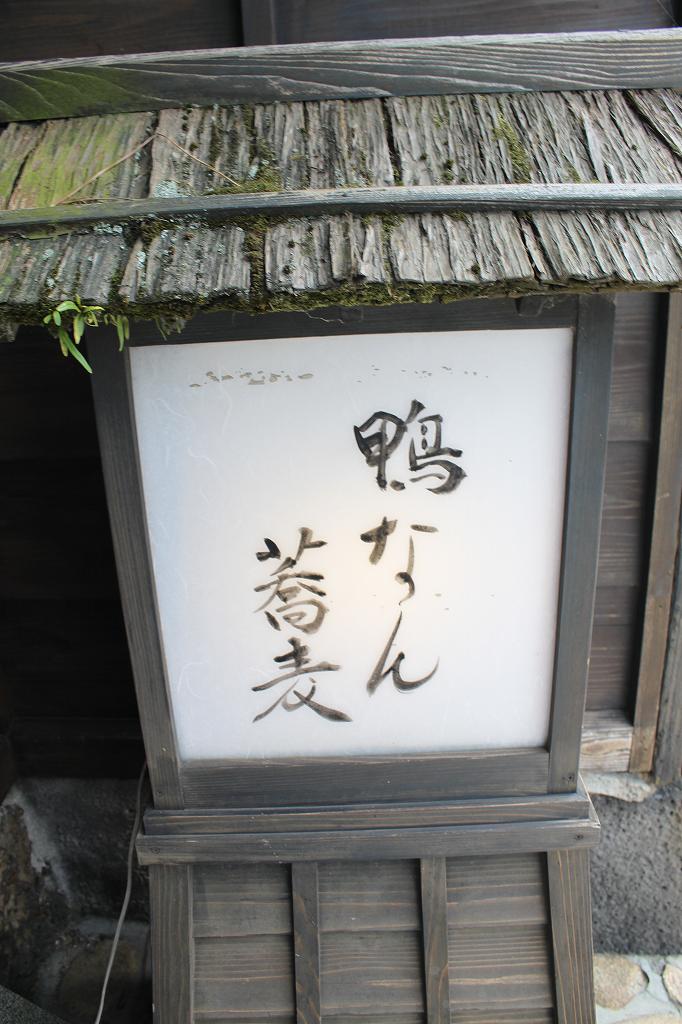 鴨なん
蕎麦